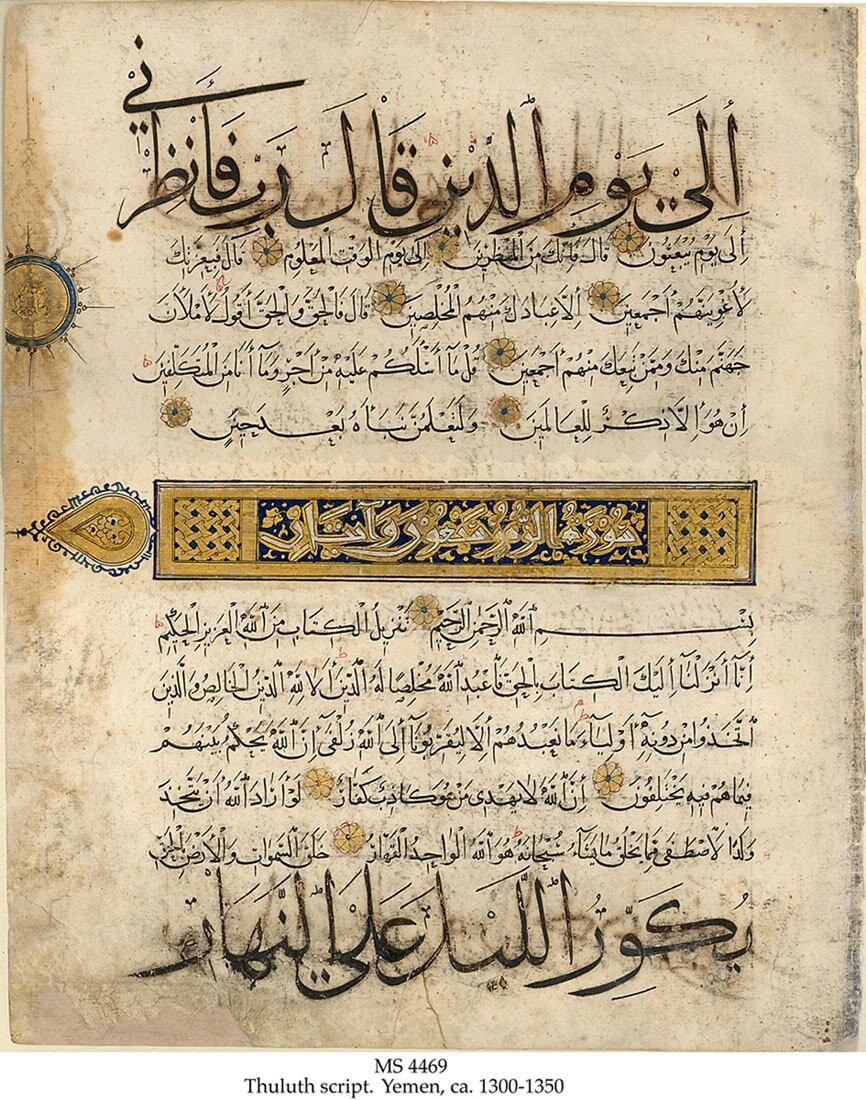 إلى يوم الدين قال رب فأنظرني
إلى يوم يبعثون قال فإنك من المنظرين إلى يوم الوقت المعلوم قال فبعزتك
لأغوينهم أجمعين إلا عبادك منهم المخلصين قال فالحق والحق أقول لأملأن
جهنم منك وممن تبعك منهم أجمعين قل ما أسئلكم عليه من أجر وما أنا من المتكلفين
إن هو إلا ذكر للعالمين ولتعلمن نبأه بعد حين
سورة الزمر سبعون وآيتان
بسم الله الرحمن الرحيم تنزيل الكتاب من الله العزيز الحكيم
إنا أنزلنا إليك الكتاب بالحق فاعبد الله مخلصا له الدين ألا لله الدين الخالص والذين
اتخذوا من دونه أولياء ما نعبدهم إلا ليقربونا إلى الله زلفى إن الله يحكم بينهم
فيما هم فيه يختلفون إن الله لا يهدي من هو كاذب كفار لو أراد الله أن يتخذ
ولدا لاصطفى مما يخلق ما يشاء سبحانه هو الله الواحد القهار خلق السموات والأرض بالحق
يكور الليل على النهار
MS 4469
Thuluth script. Yemen, ca. 1300-1350